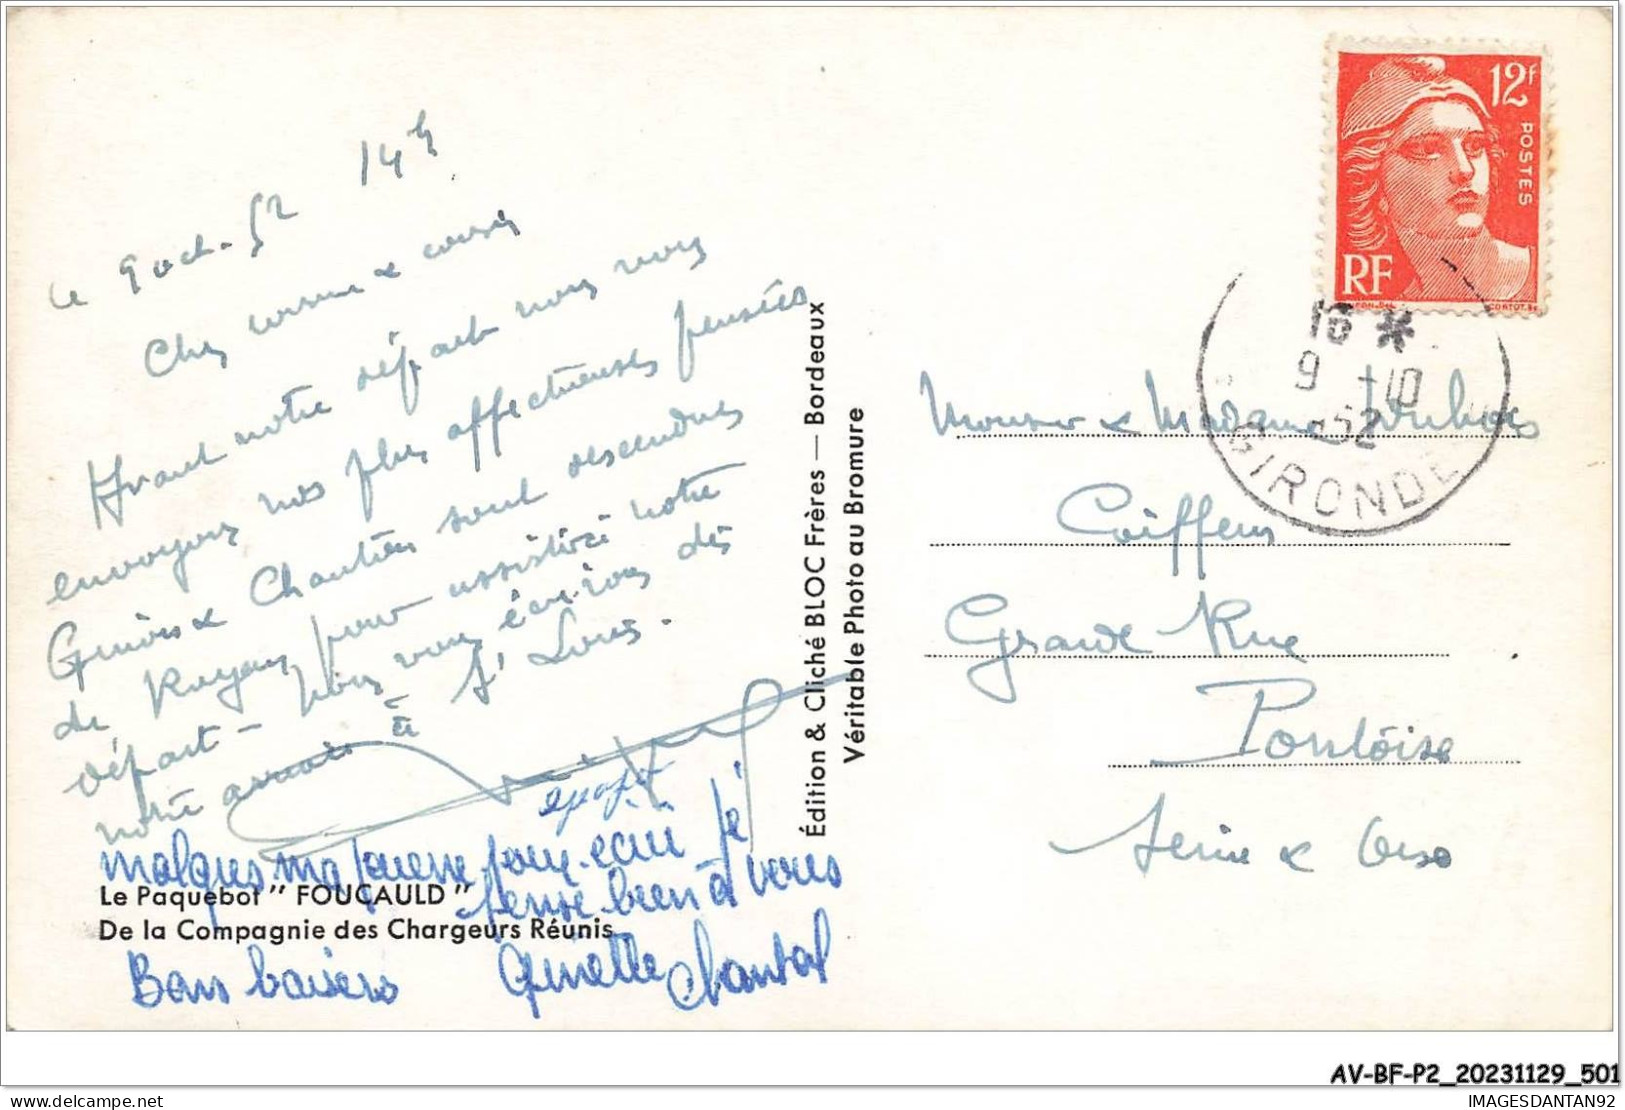 le 9 oct. 52 14h
Cher cousine & cousin
Avant notre départ nous vous
envoyons nos plus affectueuses pensées
& Chantal sont descendues
de Royan pour assister notre
départ - puis vous écrirons dès
notre arrivée à St Louis.
malgres ma pour ecrir je
pense bien à vous
Bons baisers Ginette Chantal
Le Paquebot " FOUCAULD "
De la Compagnie des Chargeurs Réunis
Édition & Cliché BLOC Frères — Bordeaux
Véritable Photo au Bromure
12f
POSTES
RF
16 *
9 -10
52
GIRONDE
Monsieur & Madame Dubois
Coiffeur
Grande Rue
Pontoise
Seine & Oise
AV-BF-P2_20231129_501
IMAGESDANTAN92